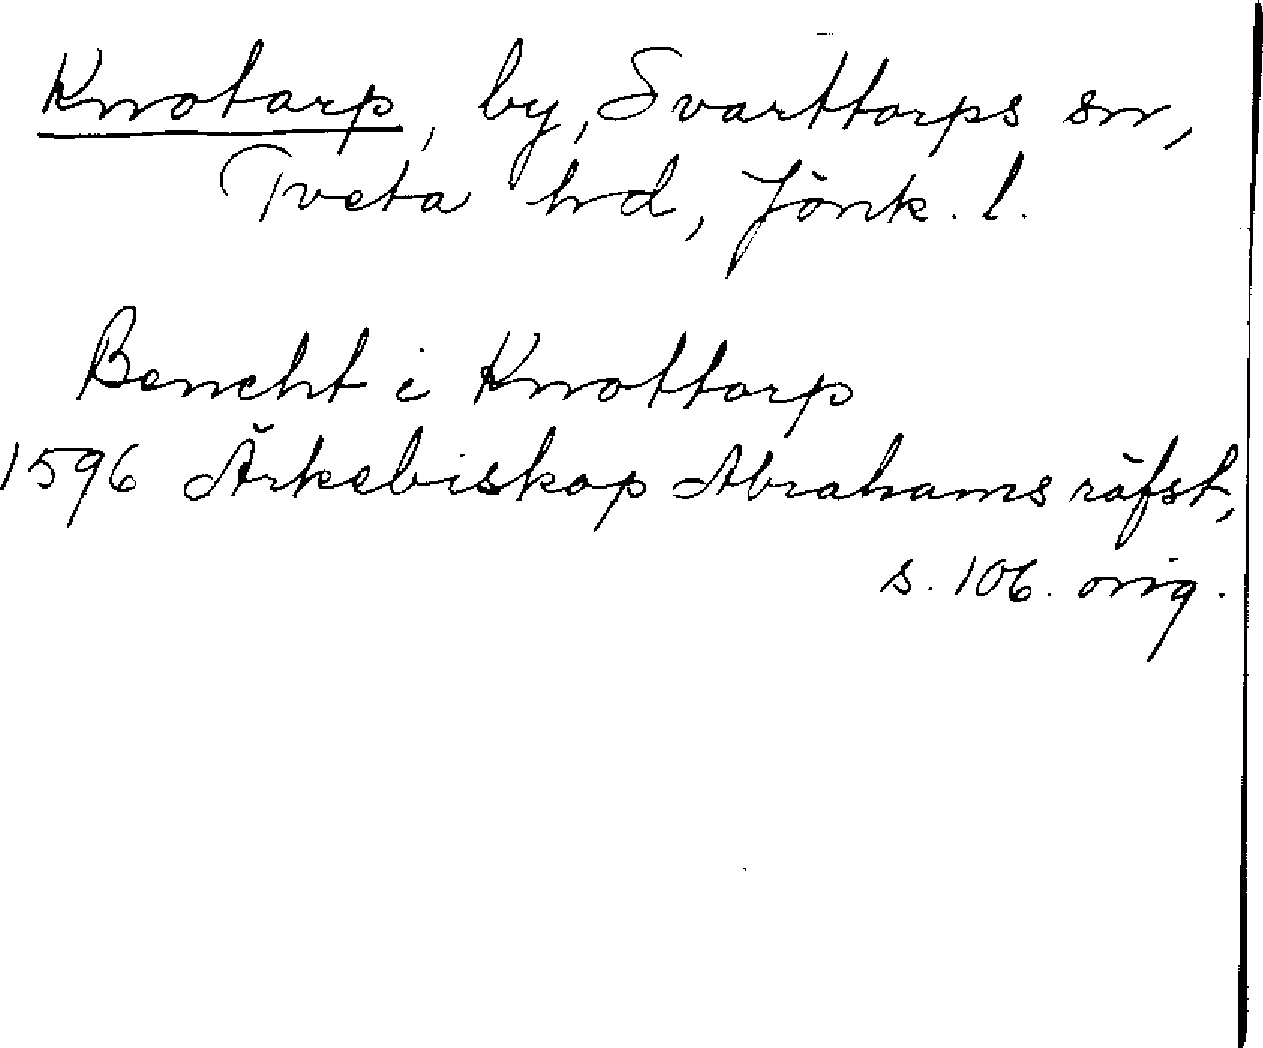 Knotarp, by, Svarttorps sn,
Tveta hd, Jönk. l.
Bencht i Knottorp
1596 Ärkebiskop Abrahams räfst,
s. 106. orig.